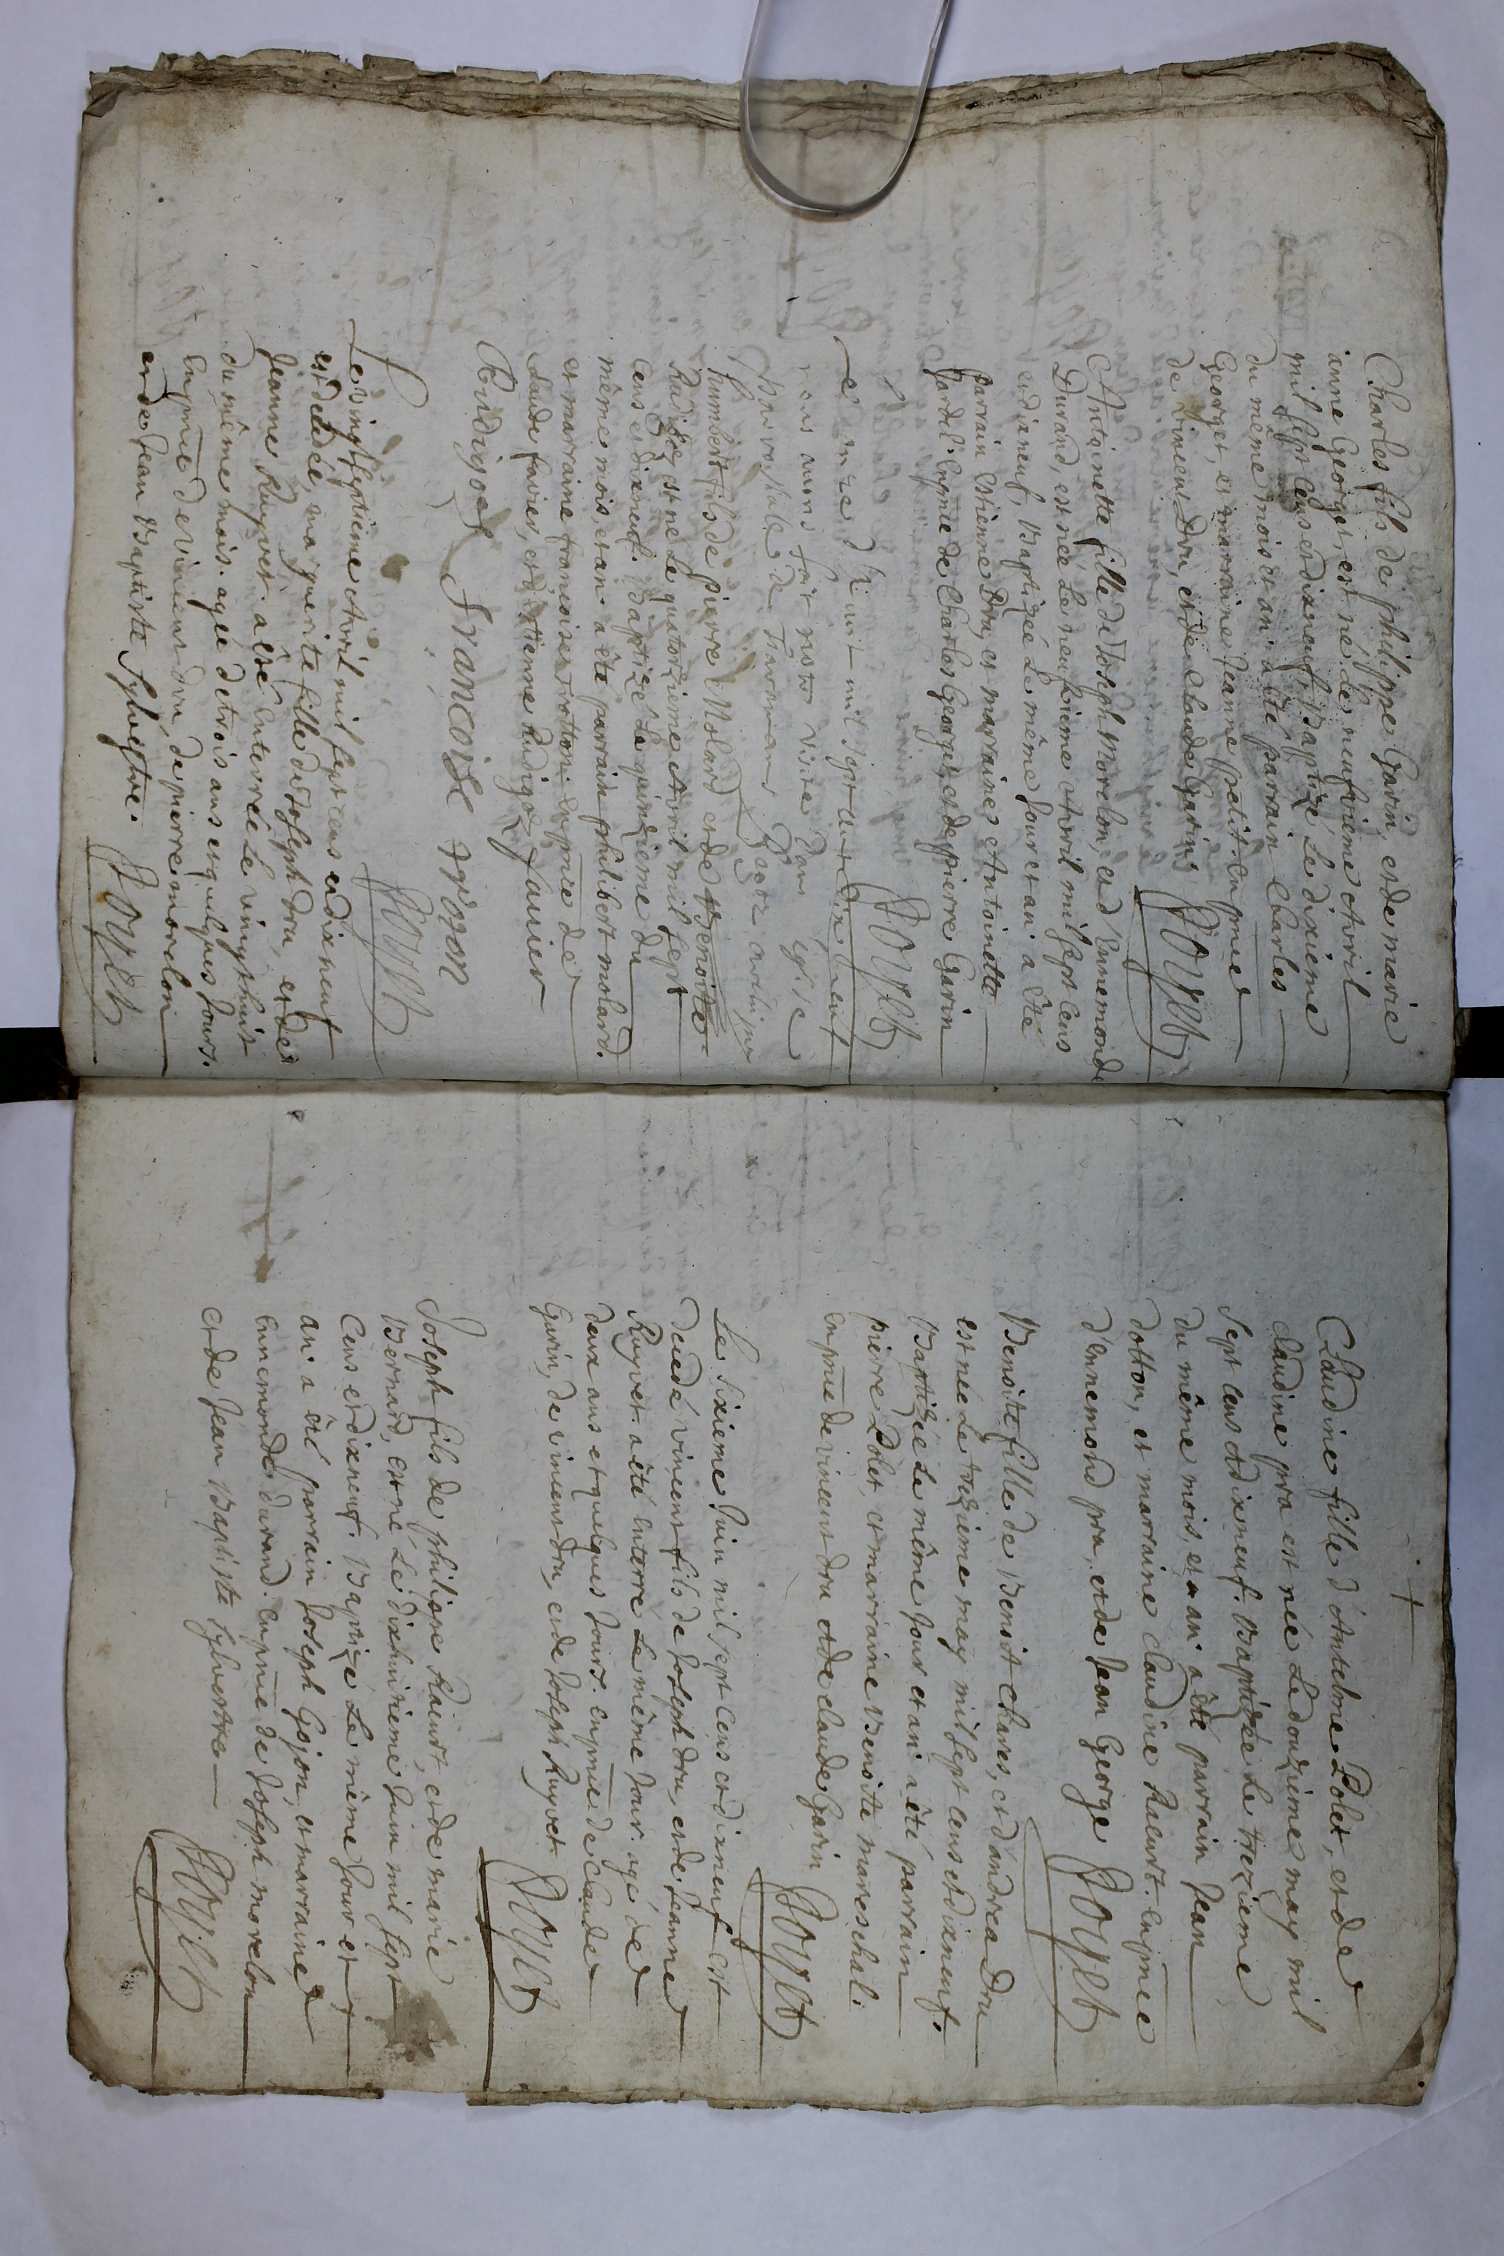 Charles fils de philippe Garin, et de marie
anne George, est né le neufvieme Avril
mil sept cens et dixneuf, Baptizé Le dixieme
du même mois et an. a été parrain Charles
George, et marraine Jeanne petit. en pnce
de vincent Dru, et de claude Garin
Royet
Antoinette fille de Joseph Morelon, et d'Ennemonde
Durand, est née Le neufvieme Avril mil sept cens
et dixneuf, Baptizée Le même jour et an. a été
parrain Etienne Dru, et marraine Antoinette
pardel. en pnce de Charles George, et de pierre Garin
Royet
Le onze d'Avril mil sept cent dix neuf
nous avons fait notre visite dans l'église
parroissiale de
humbert fils de pierre Molard et de Benoite
Rudigoz, est né Le quatorzieme Avril mil sept
cens et dixneuf. Baptizé Le quinzieme du
même mois, et an. a été parrain philibert molard.
et marraine francoise trotton. en pnce de
Claude favier, et d'Etienne Rudigoz favier
Rudigoz francoise troton
Royet
Le vingtseptieme Avril mil sept cens et dixneuf
est decedée, marguerite fille de Joseph dru, et de
Jeanne Ruyvet. a été enterrée Le vingthuit
du même mois. agée de trois ans et quelques jours.
en pnce de vincent dru, de pierre morelon
et de Jean Baptiste Sylvestre.
Royet
Claudine fille d'Antelme Polet, et de
claudine pra est née Le douzieme may mil
sept cens et dixneuf. Baptizée Le treizieme
du même mois, et an. a été parrain Jean
dotton, et marraine claudine Raeurt. en pnce
d'Ennemond pra, et de Jean George
Royet
Benoite fille de Benoit chaves, et d'andrea Dru
est née Le treizieme may mil sept cens et dixneuf.
Baptizée Le même jour et an. a été parrain
pierre Polet, et marraine Benoite mareschal.
en pnce de vincent dru et de claude Garin
Royet
Le Sixieme Juin mil sept cens et dixneuf est
decedé vincent fils de Joseph dru, et de Jeanne
Ruyvet. a été enterré Le même jour. agé de
deux ans et quelques jours. en pnce de Claude
Garin, de vincent dru, et de Joseph Ruyvet
Royet
Joseph fils de philippe Raeurt, et de marie
Bernard, est né Le dixhuitieme Juin mil sept
cens et dixneuf. Baptizé Le même jour et
an. a été parrain Joseph Gojon, et marraine
Ennemonde durand. en pnce de Joseph morelon
et de Jean Baptiste Sylvestre
Royet